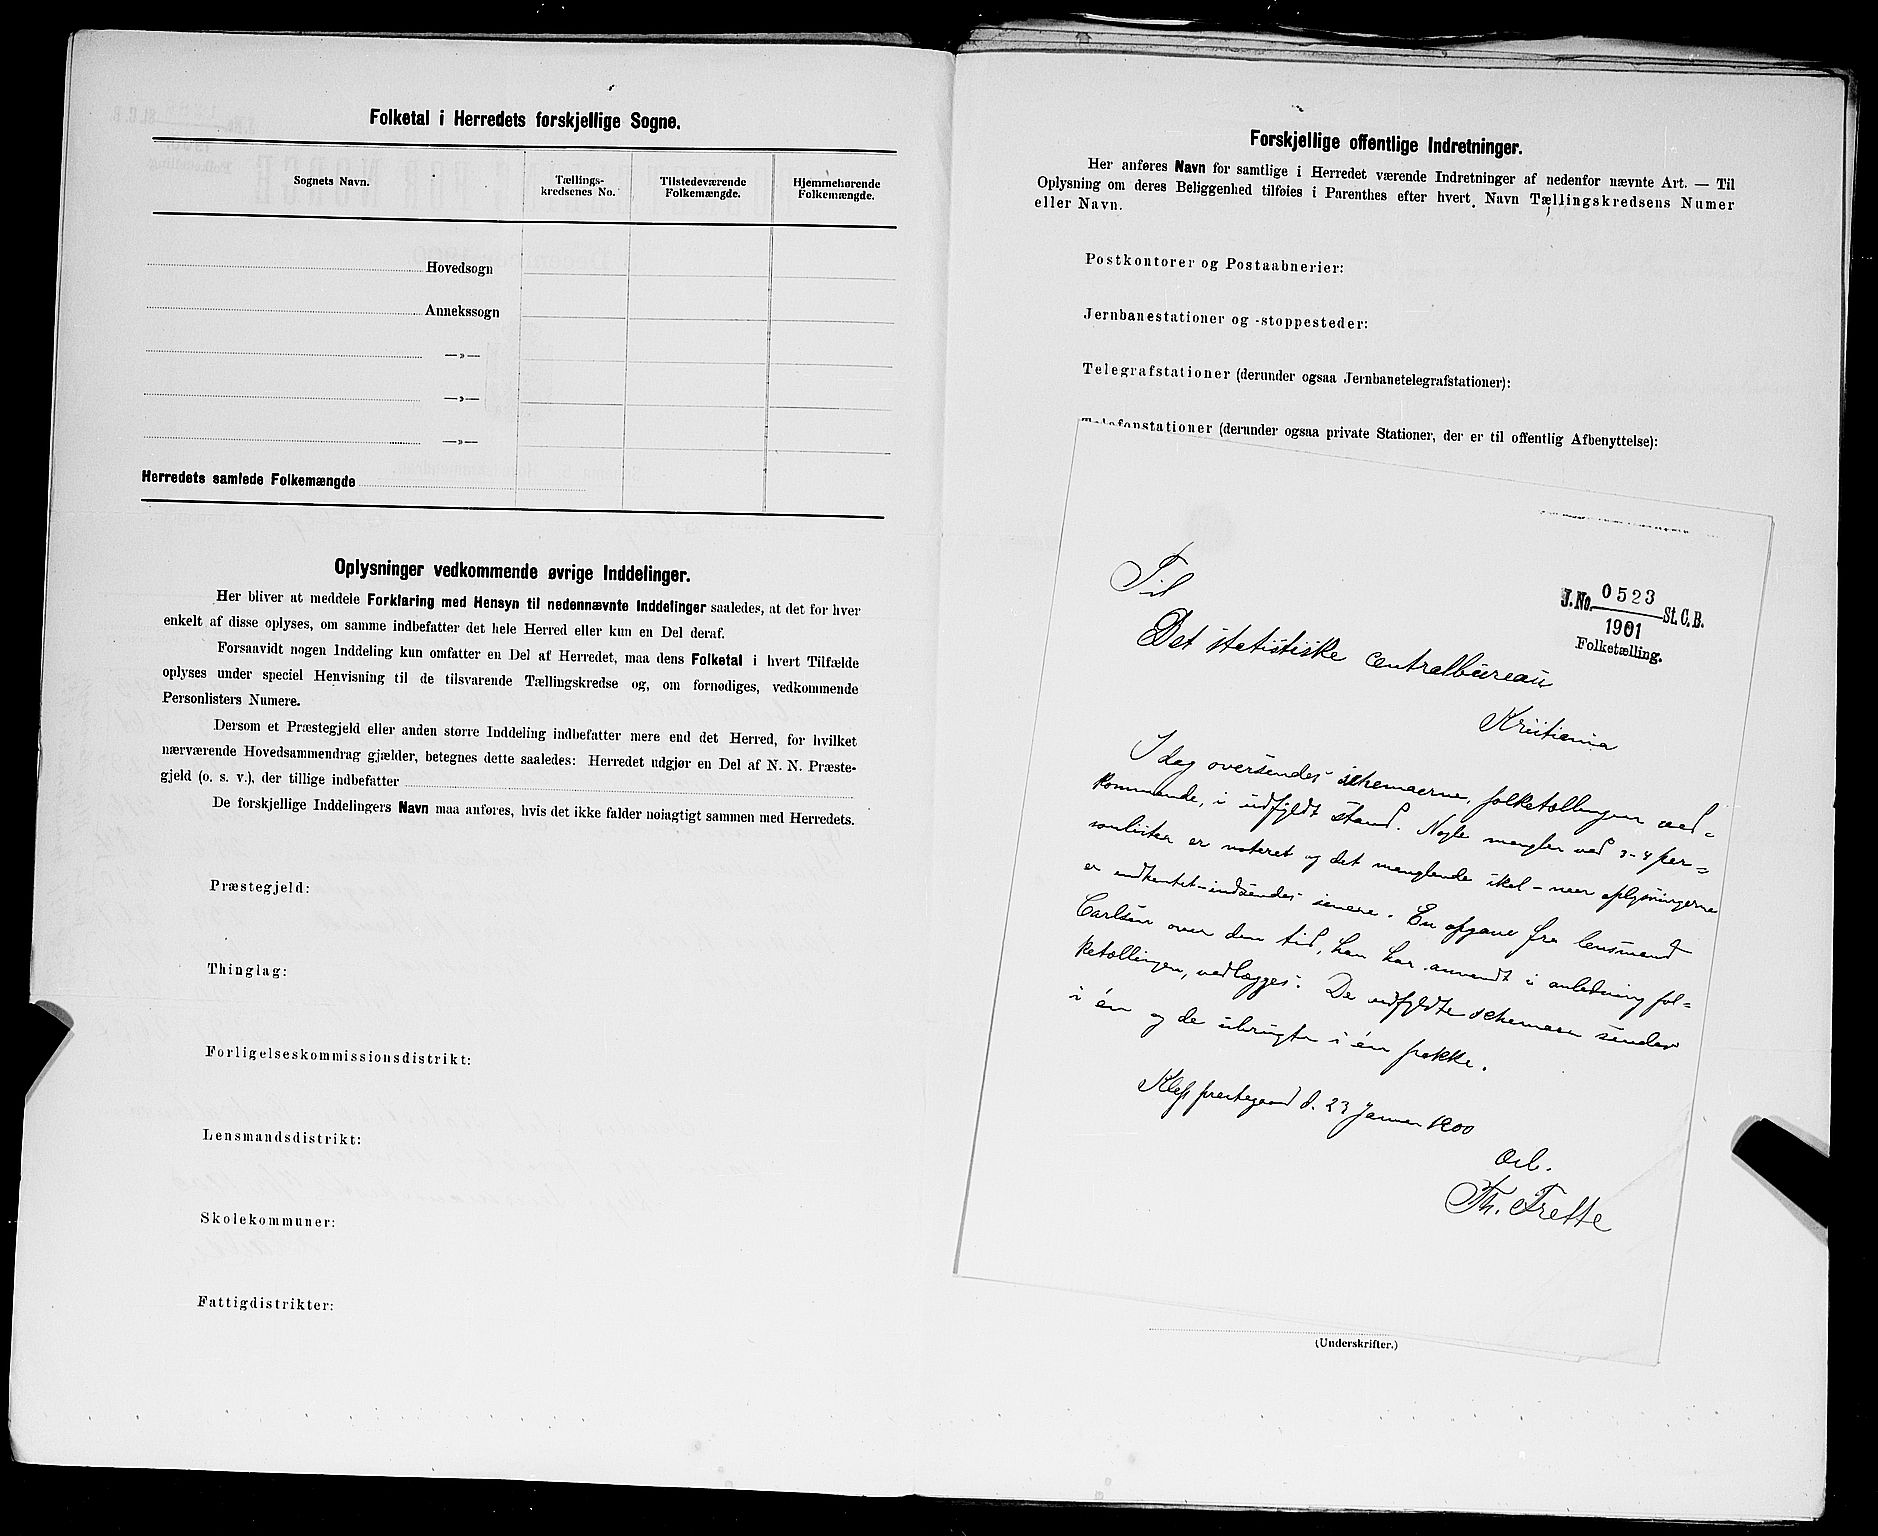 Folketal i Herredets forskjellige Sogne.
Sognets Navn.
Tællings-
kredsenes No.
Tilstedeværende
Folkemængde.
Hjemmehørende
Folkemængde.
Hovedsogn
Annekssogn
—»—
—»—
—»—
Herredets samlede Folkemængde
Oplysninger vedkommende øvrige Inddelinger.
Her bliver at meddele Forklaring med Hensyn til nedennævnte Inddelinger saaledes, at det for hver
enkelt af disse oplyses, om samme indbefatter det hele Herred eller kun en Del deraf.
Forsaavidt nogen Inddeling kun omfatter en Del af Herredet, maa dens Folketal i hvert Tilfælde
oplyses under speciel Henvisning til de tilsvarende Tællingskredse og, om fornødiges, vedkommende
Personlisters Numere.
Dersom et Præstegjeld eller anden større Inddeling indbefatter mere end det Herred, for hvilket
nærværende Hovedsammendrag gjælder, betegnes dette saaledes: Herredet udgjør en Del af N. N. Præste-
gjeld (o. s. v.), der tillige indbefatter
De forskjellige Inddelingers Navn maa anføres, hvis det ikke falder nøiagtigt sammen med Herredets.
Præstegjeld:
Thinglag:
Forligelseskommissionsdistrikt:
Lensmandsdistrikt:
Skolekommuner:
Fattigdistrikter:
Forskjellige offentlige Indretninger.
Her anføres Navn for samtlige i Herredet værende Indretninger af nedenfor nævnte Art. — Til
Oplysning om deres Beliggenhed tilføies i Parenthes efter hvert Navn Tællingskredsens Numer
eller Navn.
Postkontorer og Postaabnerier:
Jernbanestationer og -stoppesteder:
Telegrafstationer (derunder ogsaa Jernbanetelegrafstationer):
Telefonstationer (derunder ogsaa private Stationer, der er til offentlig Afbenyttelse):
J. No. 0523 St. C. B.
1901
Folketælling.
Til
Det statistiske centralbureau
Kristiania
I dag oversendes schemaerne, folketællingen ved-
kommende, i udfyldt stand. Nogle mangler ved 3-4 per-
sonlister er noteret og det manglende skal - naar oplysningerne
er indhentet - indsendes senere. En opgave fra lensmand
Carlsen over den tid, han har anvendt i anledning fol-
ketællingen, vedlægges. De udfyldte schemaer sendes
i én og de ubrugte i én pakke.
Klep prestegaard d. 23 Januar 1900
Th. Frette
(Underskrifter.)